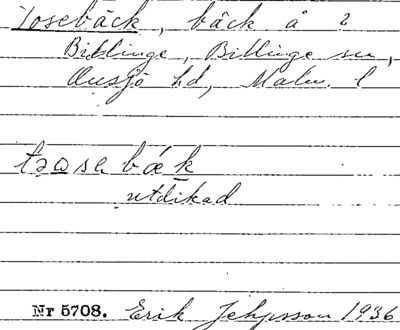 Tosebäck, bäck å 2
Billinge, Billinge sn,
Onsjö hd, Malm. l
bæk
utdikad
Nr 5708. Erik Jeppsson 1936